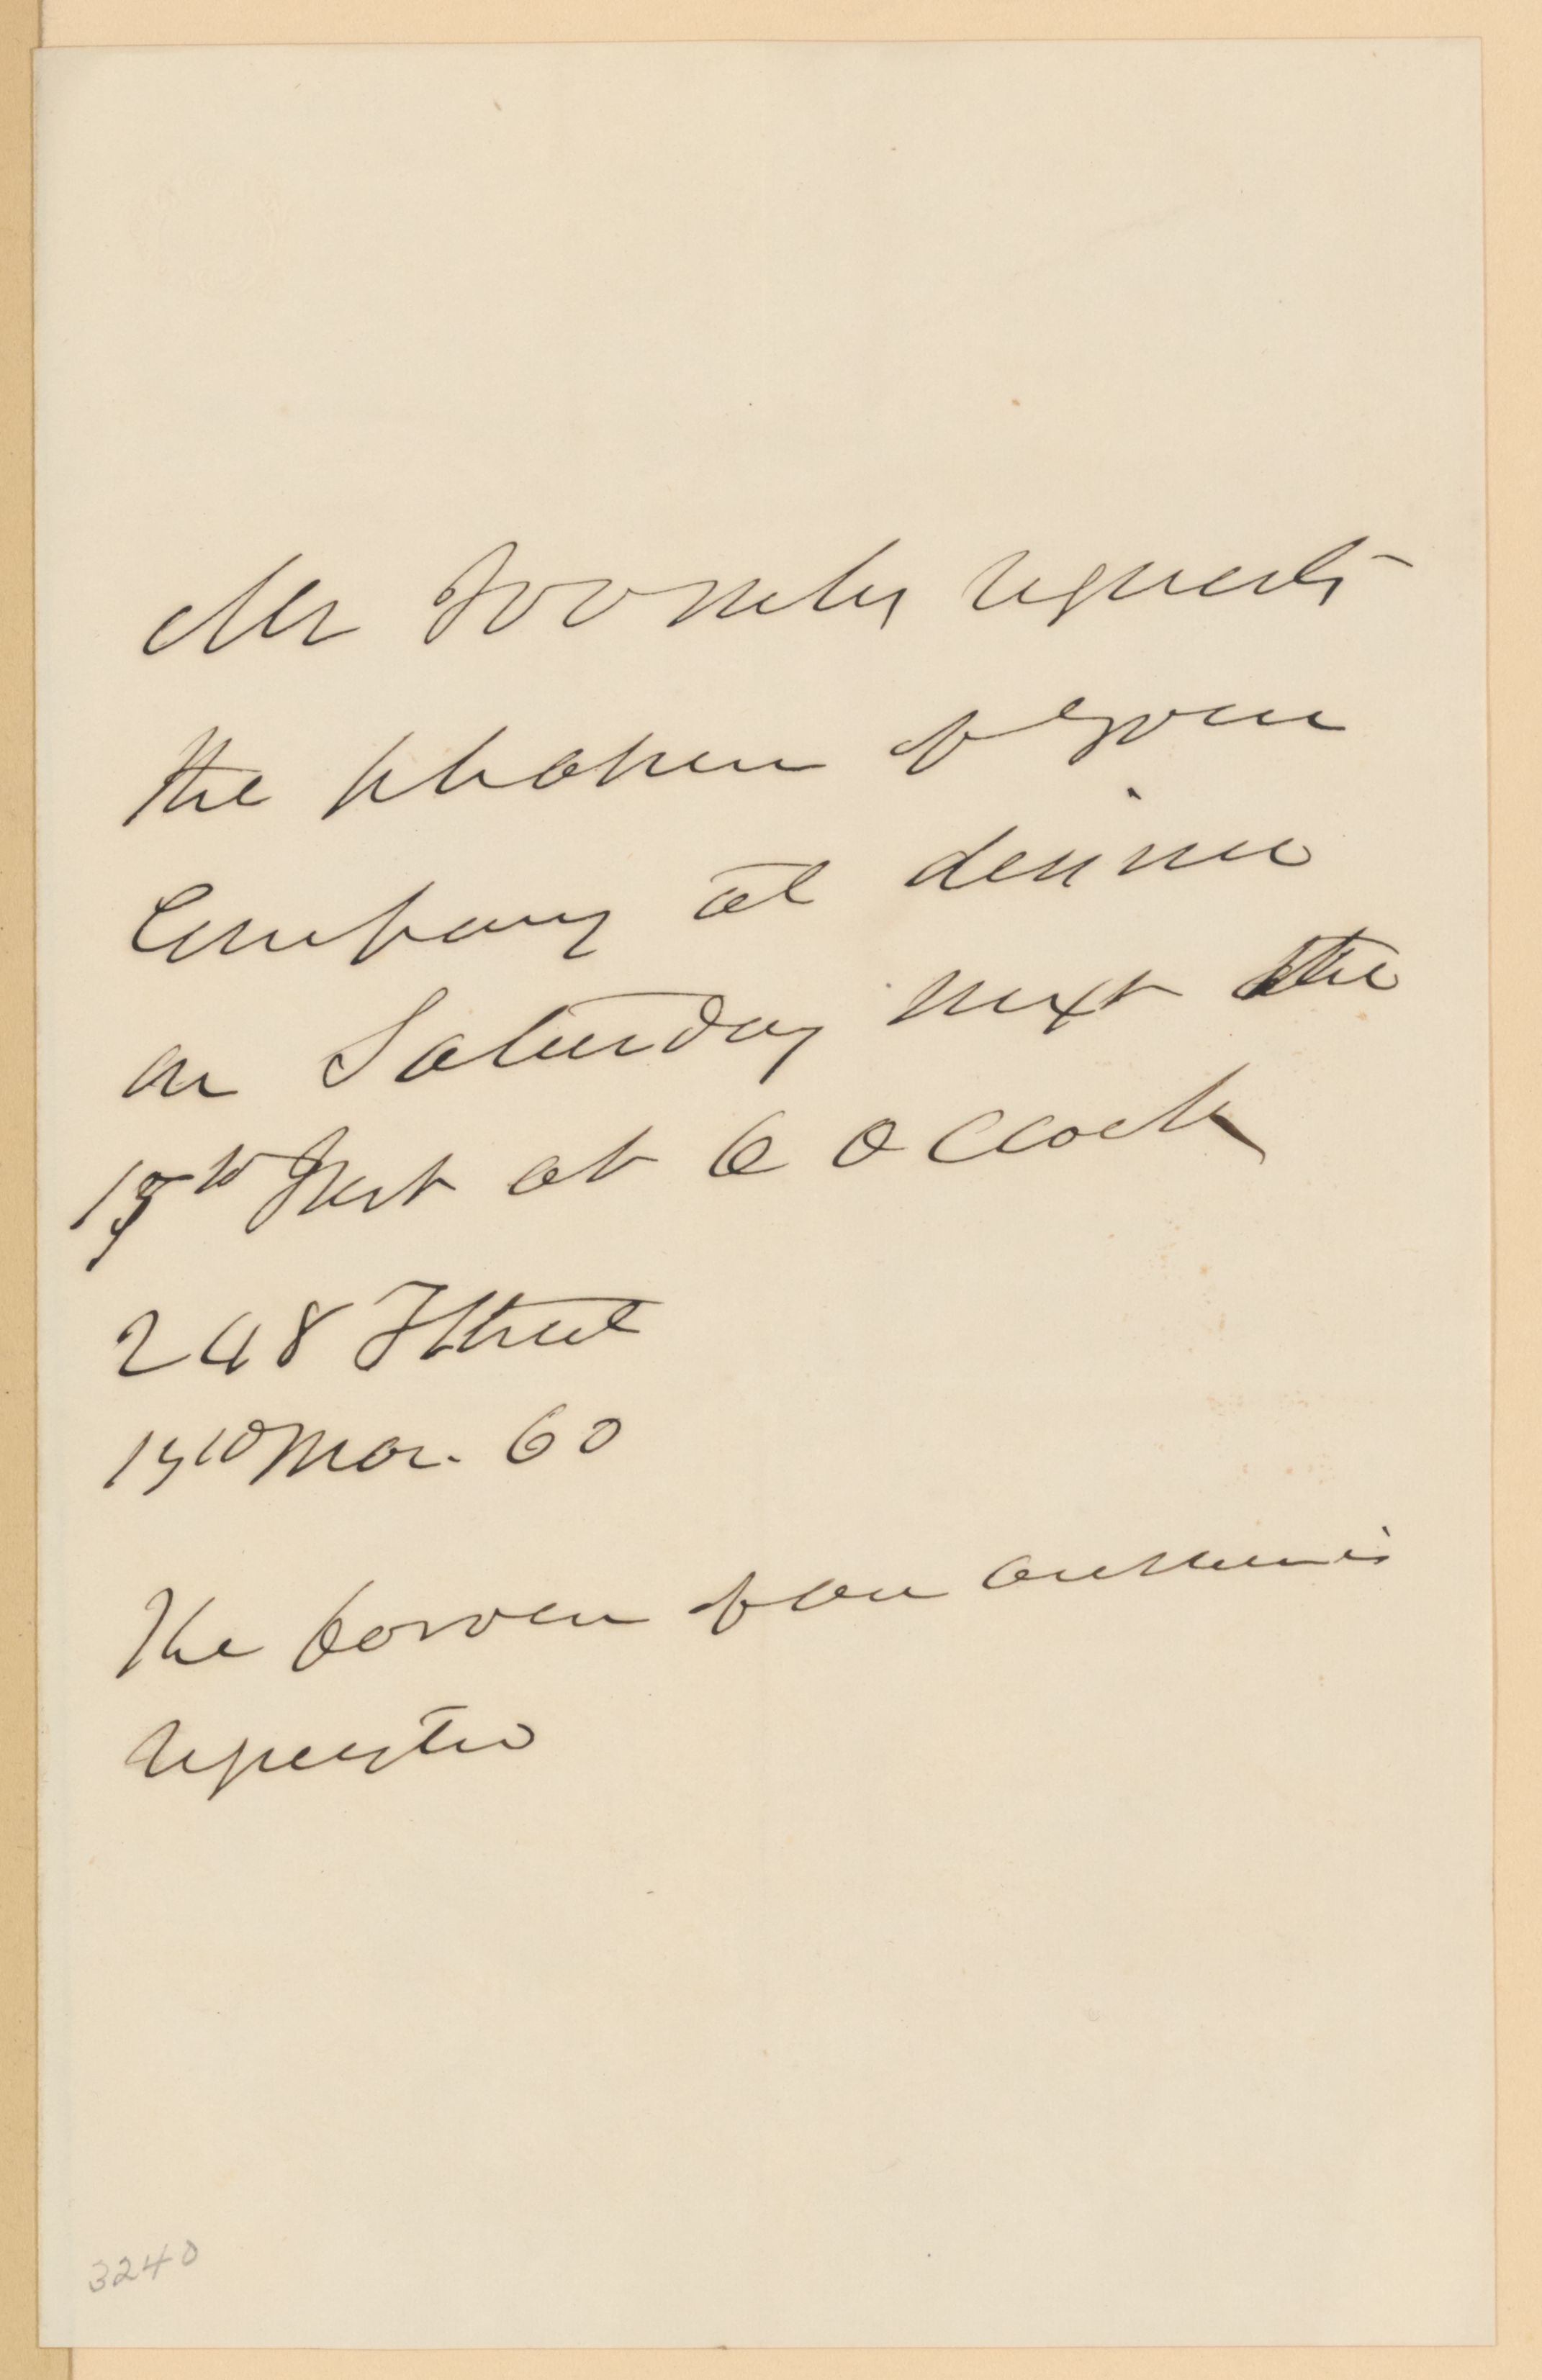 Mr Toombs requests
the pleasure of your
Company at dinner
on Saturday next the
Inst at 6 o Clock
248 F Street
15th Mar. 60
The favour of an answer is
requested
3240